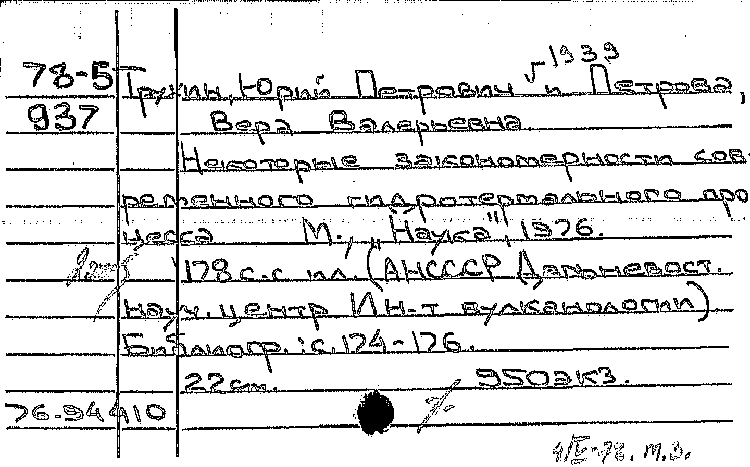 1939
78-5 Трухин, Юрий Петрович и Петрова,
937 Вера Валерьевна.
Некоторые закономерности сов-
ременного гидротермального про
цесса М., „Наука", 1976.
178 с. с ил. (АН СССР Дальневост.
науч. центр Ин-т вулканологии)
Библиогр.: с. 174-176.
22 см. 950 экз.
76-94410
4/IV-78. М.З.